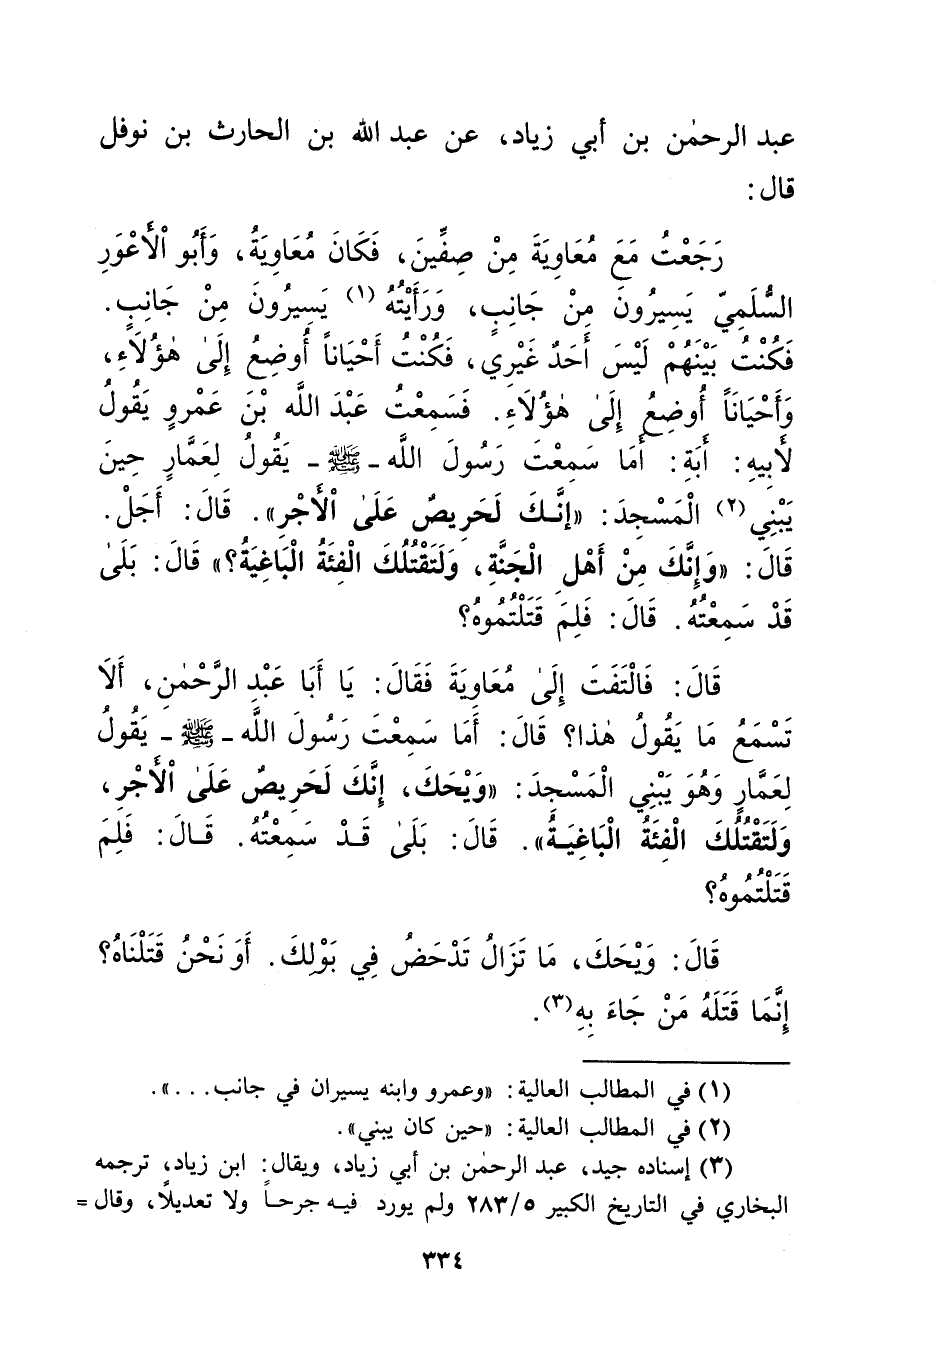 عبد الرحمٰن بن أبي زياد، عن عبد الله بن الحارث بن نوفل
قال:
رَجَعْتُ مَعَ مُعَاوِيَةَ مِنْ صِفِّينَ، فَكَانَ مُعَاوِيَةُ، وَأَبُو الْأَعْوَرِ
السُّلَمِيّ يَسِيرُونَ مِنْ جَانِبٍ، وَرَأَيْتُهُ (١) يَسِيرُونَ مِنْ جَانِبٍ.
فَكُنْتُ بَيْنَهُمْ لَيْسَ أَحَدٌ غَيْرِي، فَكُنْتُ أَحْيَاناً أُوضِعُ إِلَىٰ هٰؤُلَاءِ،
وَأَحْيَانَاً أُوضِعُ إِلَىٰ هٰؤُلَاءِ. فَسَمِعْتُ عَبْدَ اللَّه بْنَ عَمْرٍو يَقُولُ
لأَبِيهِ: أَبَةِ: أَمَا سَمِعْتَ رَسُولَ اللَّه ـ ﷺ ـ يَقُولُ لِعَمَّارٍ حِينَ
يَبْنِي(٢) الْمَسْجِدَ: «إِنَّكَ لَحَرِيصٌ عَلَىٰ الْأَجْرِ». قَالَ: أَجَلْ.
قَالَ: «وَإِنَّكَ مِنْ أَهْلِ الْجَنَّةِ، وَلَتَقْتُلُكَ الْفِئَةُ الْبَاغِيَةُ؟» قَالَ: بَلَىٰ
قَدْ سَمِعْتُهُ. قَالَ: فَلِمَ قَتَلْتُمُوهُ؟
قَالَ: فَالْتَفَتَ إِلَىٰ مُعَاوِيَةَ فَقَالَ: يَا أَبَا عَبْدِ الرَّحْمٰنِ، أَلَا
تَسْمَعُ مَا يَقُولُ هٰذا؟ قَالَ: أَمَا سَمِعْتَ رَسُولَ اللَّه ـ ﷺ ـ يَقُولُ
لِعَمَّارٍ وَهُوَ يَبْنِي الْمَسْجِدَ: «وَيْحَكَ، إِنَّكَ لَحَرِيصٌ عَلَىٰ الْأَجْرِ،
وَلَتَقْتُلُكَ الْفِئَةُ الْبَاغِيَةُ». قَالَ: بَلَىٰ قَدْ سَمِعْتُهُ. قَالَ: فَلِمَ
قَتَلْتُمُوهُ؟
قَالَ: وَيْحَكَ، مَا تَزَالُ تَدْحَضُ فِي بَوْلِكَ. أَوَ نَحْنُ قَتَلْنَاهُ؟
إِنَّمَا قَتَلَهُ مَنْ جَاءَ بِهِ(٣).
(١) في المطالب العالية: «وعمرو وابنه يسيران في جانب...».
(٢) في المطالب العالية: «حين كان يبني».
(٣) إسناده جيد، عبد الرحمٰن بن أبي زياد، ويقال: ابن زياد، ترجمه
البخاري في التاريخ الكبير ٢٨٣/٥ ولم يورد فيه جرحاً ولا تعديلًا، وقال =
٣٣٤